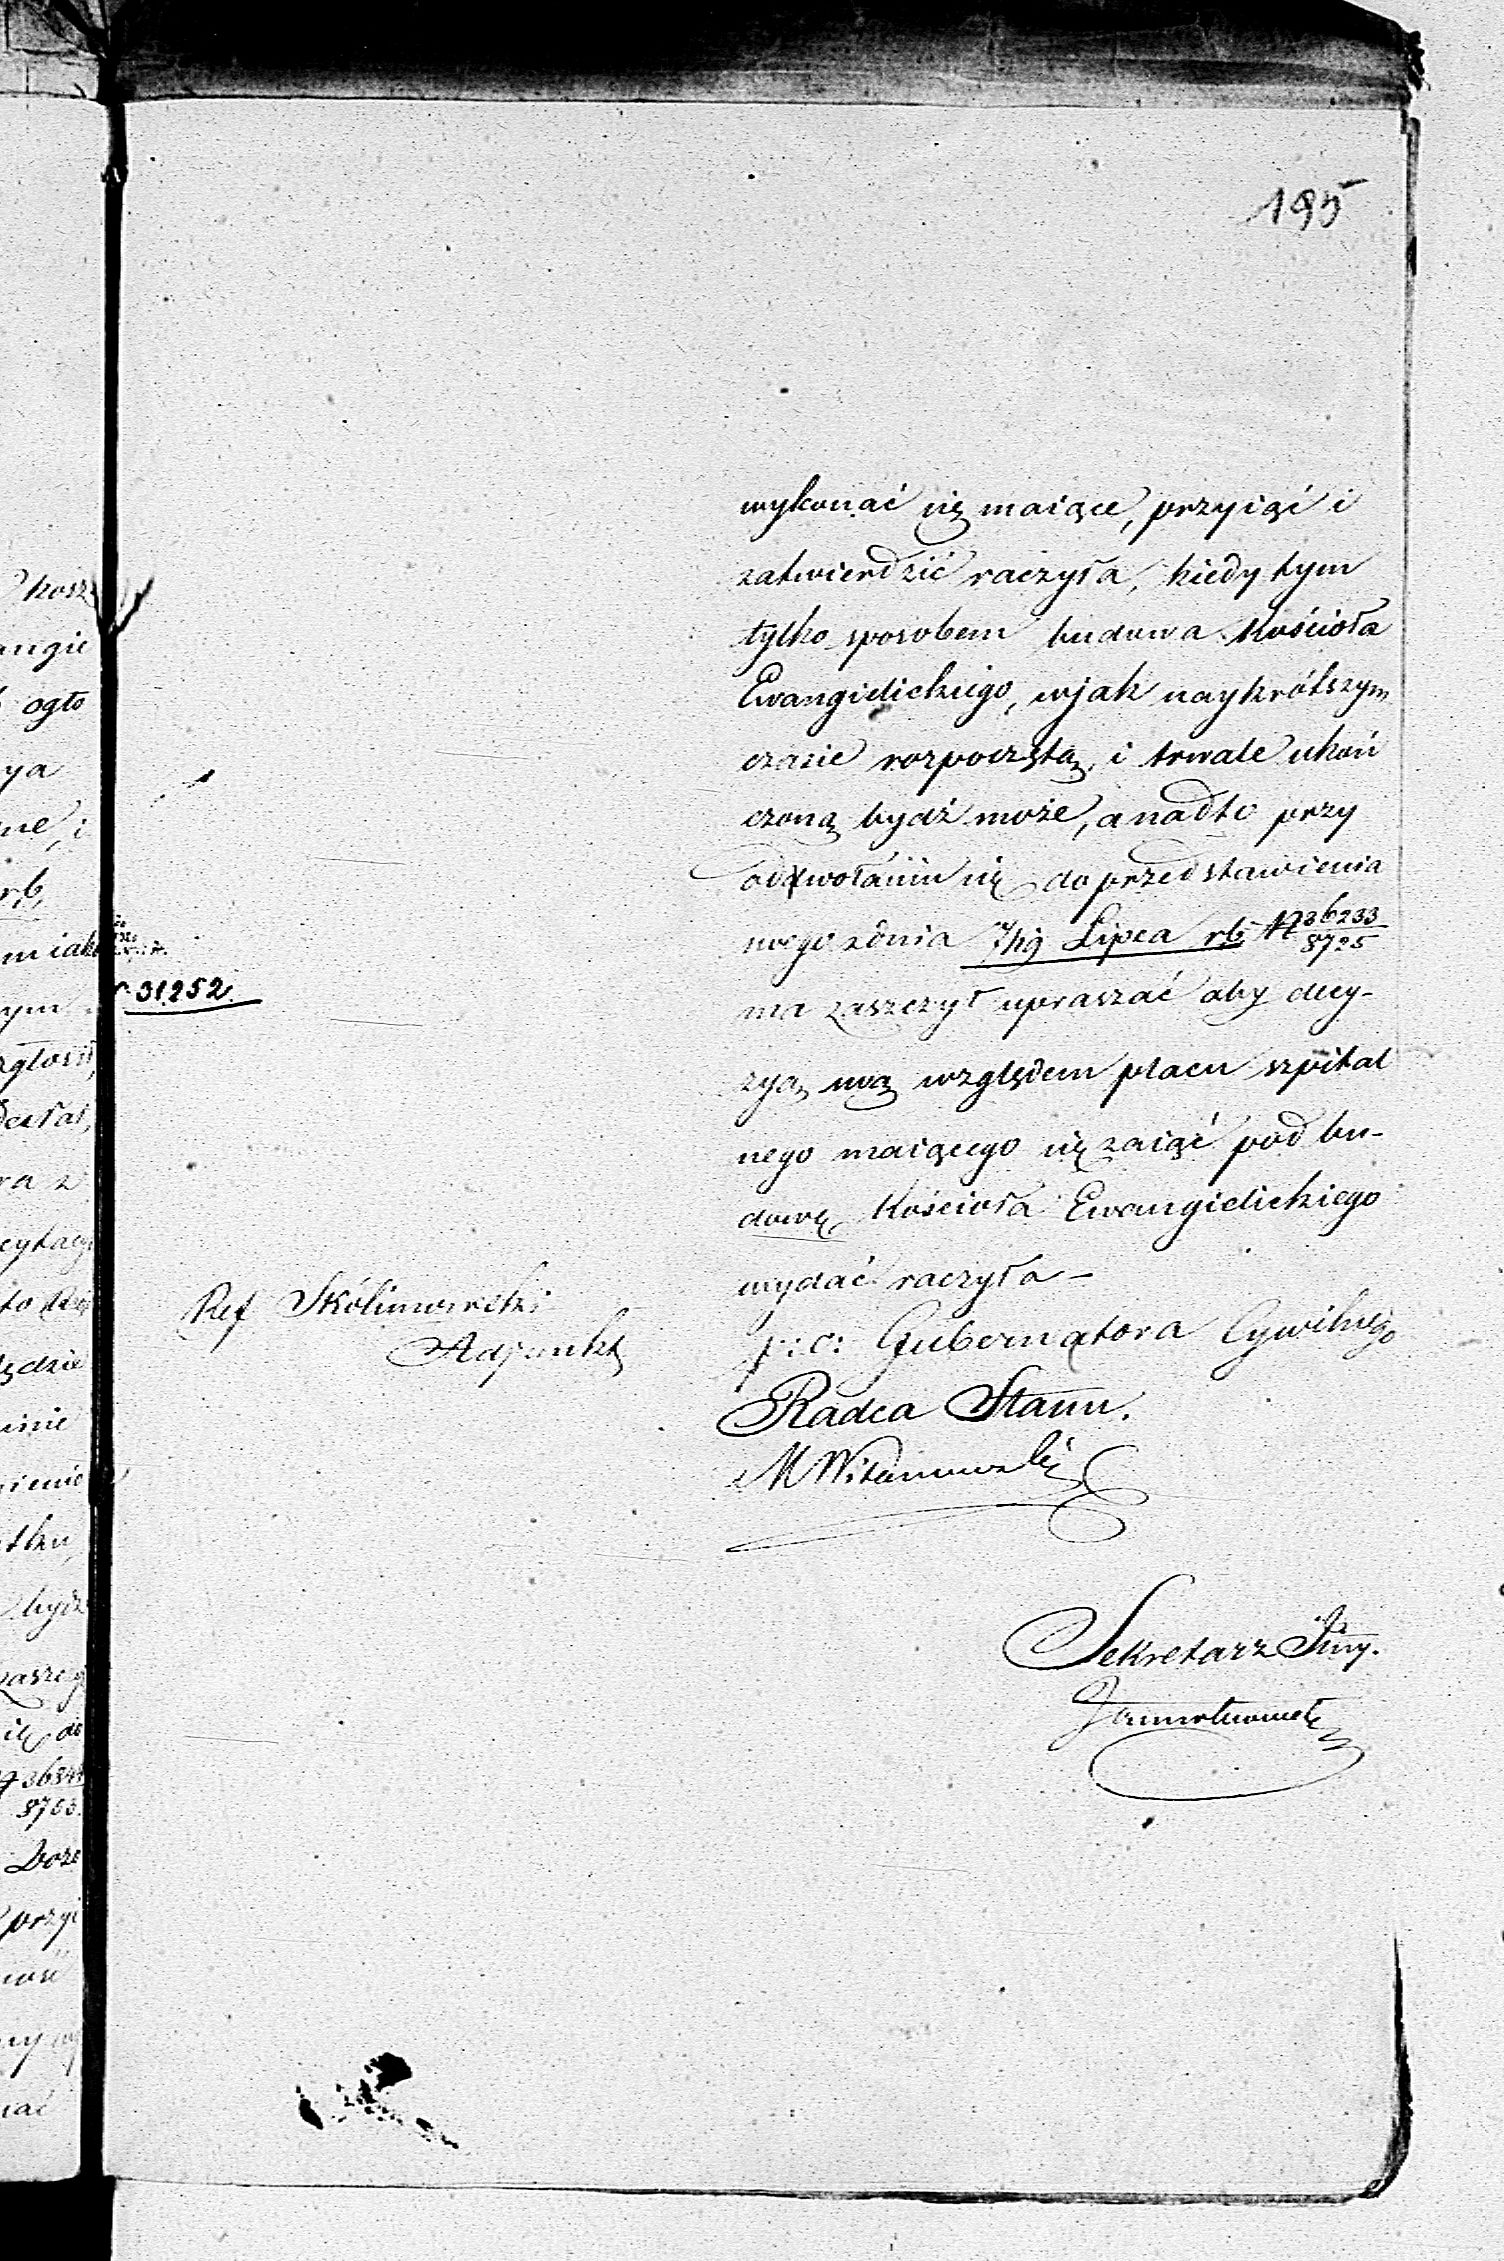 195
wykonać się maiące, przyiąć i
zatwierdzić raczyła, kiedy tym
tylko sposobem budowa Kościoła
Ewangielickiego, w jak naykrótszym
czasie rozpoczętą, i trwale ukoń
czoną bydź może, a nadto przy
odwołaniu się do przedstawienia
swego z dnia 7/19 Lipca rb N 36233/8725
ma zaszczyt upraszać aby decy-
zyą swą względem placu szpital
nego maiącego się zaiąć pod bu-
dowę Kościoła Ewangielickiego
wydać raczyła –
p: o: Gubernatora Cywilnego
Radca Stanu.
M Witanowski
Ref Skólimowski
Adjunkt
Sekretarz Jlny.
31252.
kosz
angie
ogło
ya
ne, i
rb,
m iako
ym
zgłosił,
ra z
będzie
bydź
się do
8703.
Boże
przyi